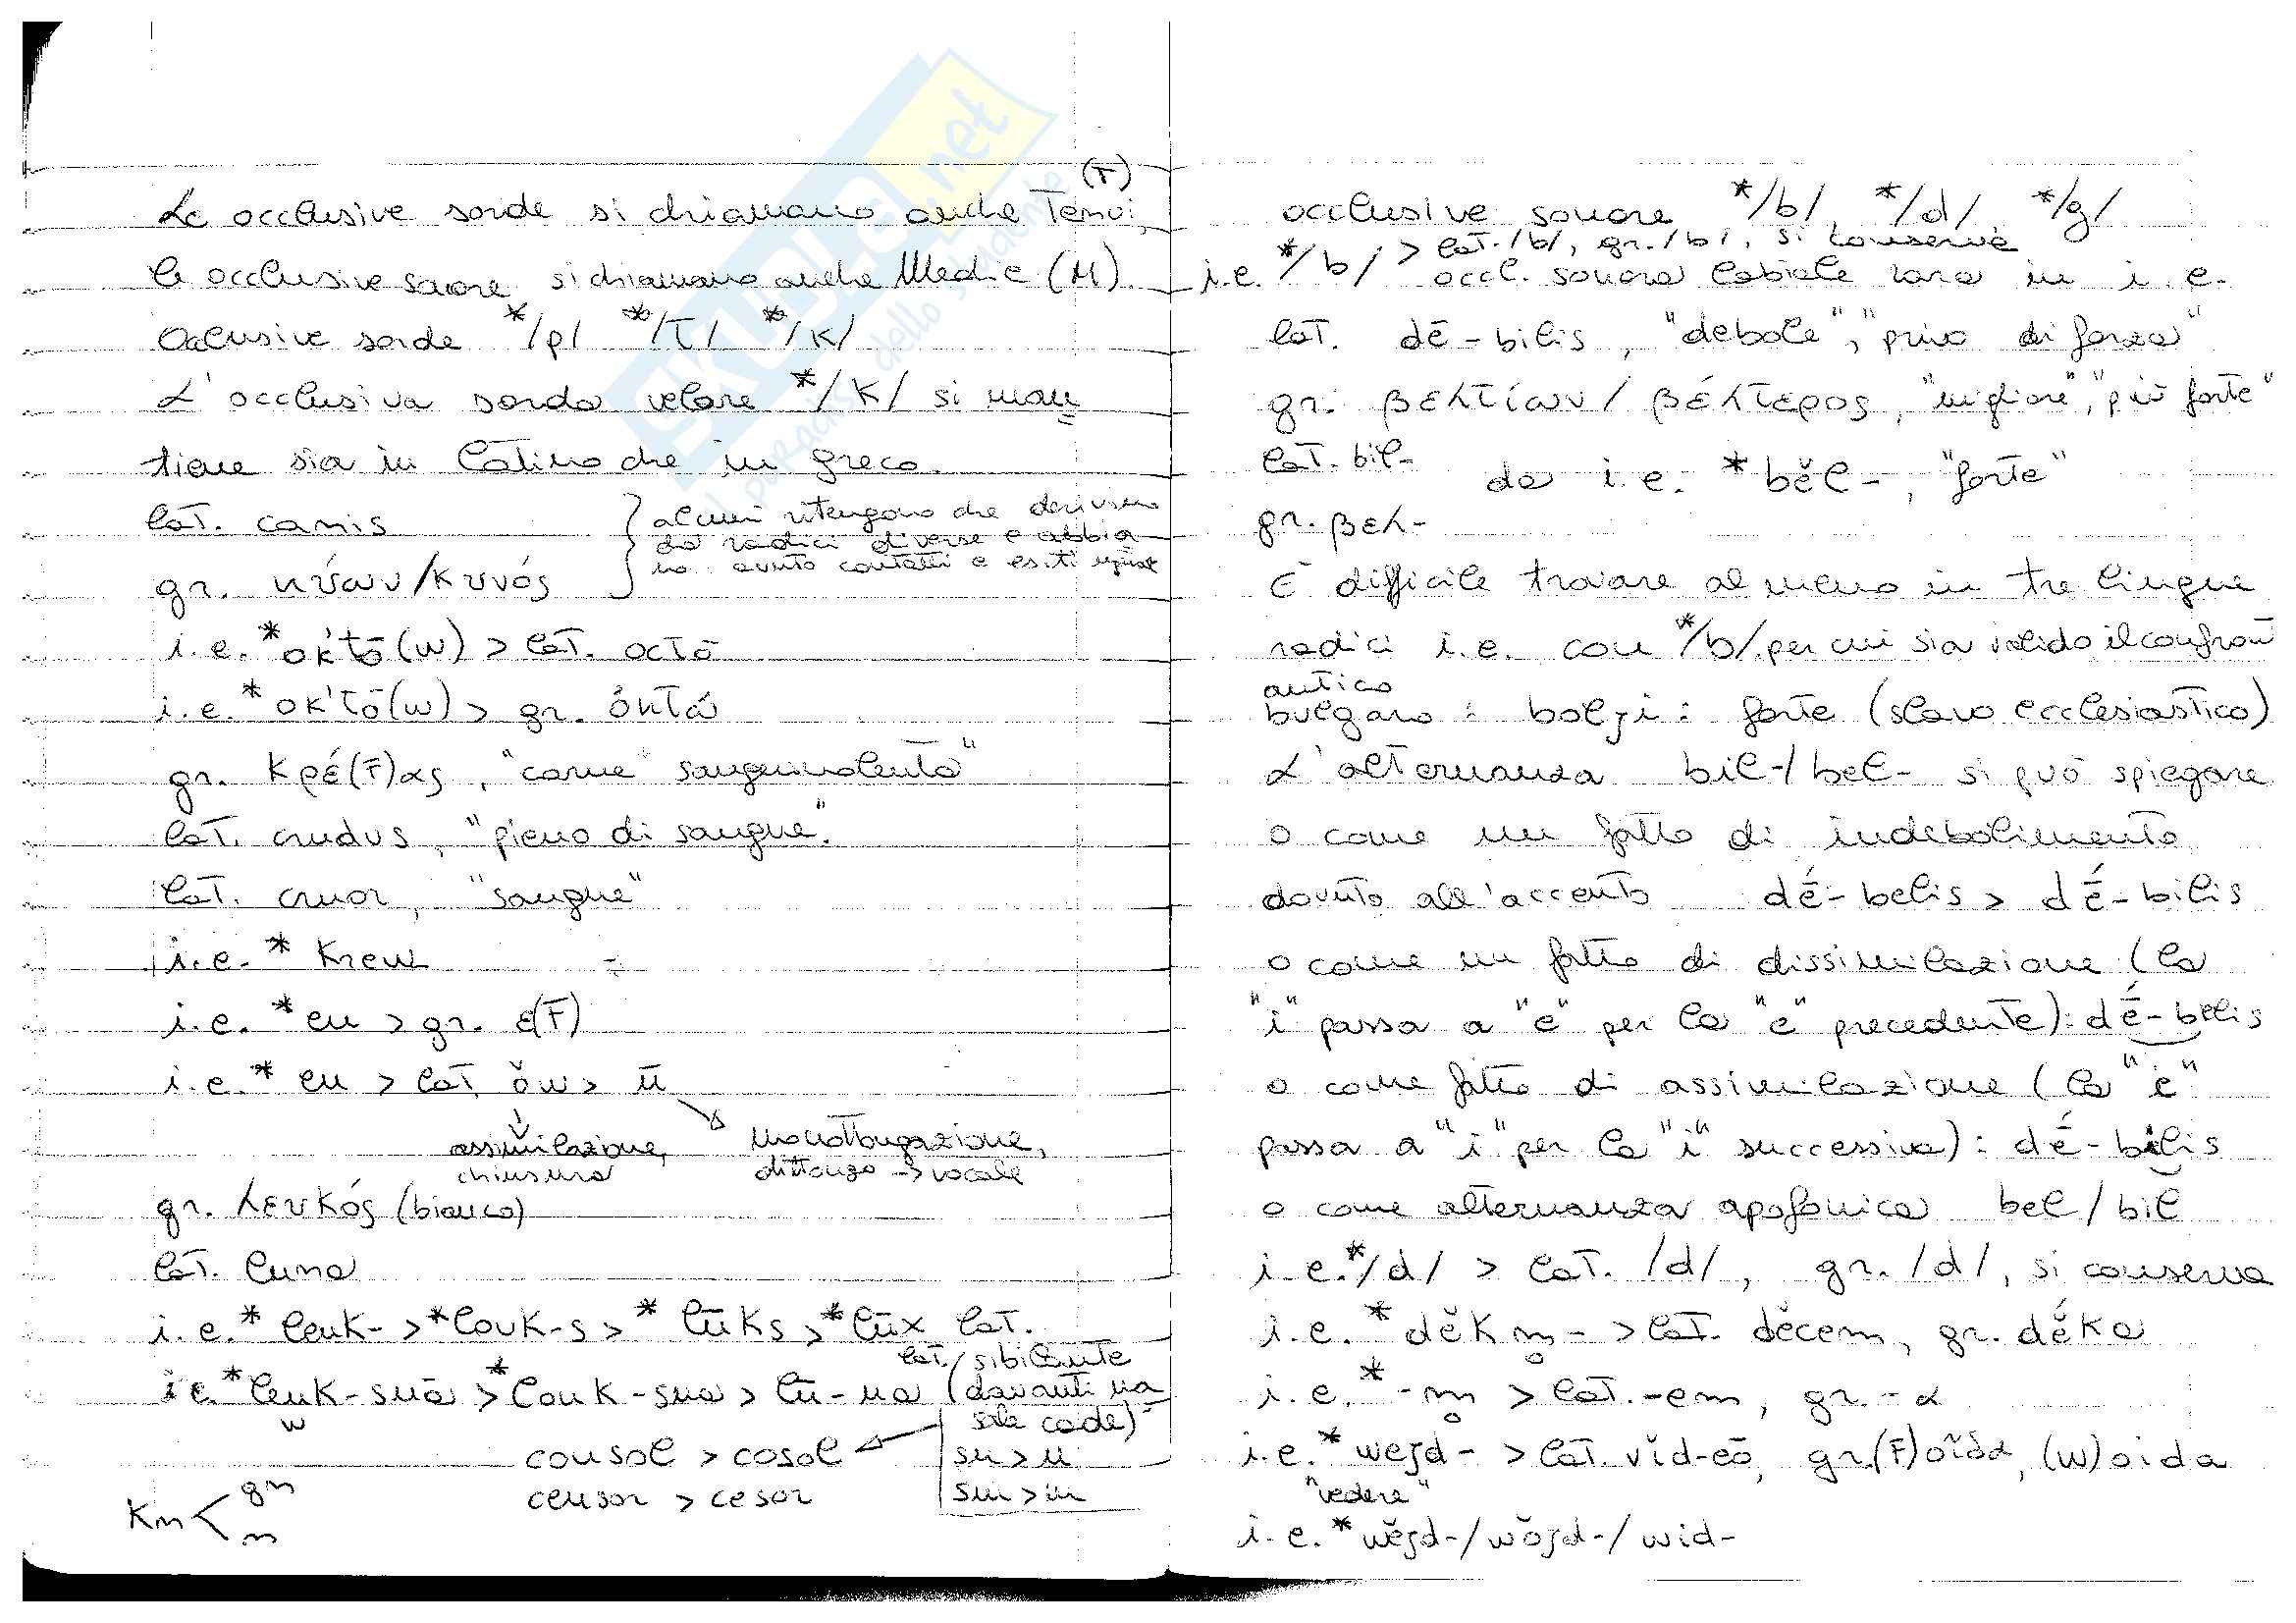 (T)
Le occlusive sorde si chiamano anche Tenui,
le occlusive sonore si chiamano anche Medie (M).
Occlusive sorde */p/ */t/ */k/
L'occlusiva sorda velare */k/ si man
tiene sia in latino che in greco.
lat. canis
alcuni ritengono che derivino
da radici diverse e abbia
no avuto contatti e esiti
gr. κύων/κυνός
i.e. *ok'tō(w) > lat. octō
i.e. *ok'tō(w) > gr. ὀκτώ
gr. κρέ(F)ας, "carne" sanguinolenta"
lat. crudus, "pieno di sangue".
lat. cruor, "sangue"
i.e. * kreu
i.e. *eu > gr. ε(F)
i.e. * eu > lat. ŏw > ū
assimilazione, chiusura
monottongazione, dittongo → vocale
gr. λευκός (bianco)
lat. luna
i.e. * leuk- > *louk-s > * lūks > *lūx lat.
lat./sibilante
i.e. *leuk-snā > *louk-sna > lū-na (davanti na
w
sale cade)
consol > cosol
sn > n
censor > cesor
sm > m
kn < gn
n
occlusive sonore */b/, */d/ */g/
> lat. /b/, gr. /b/, si conserva
i.e. */b/ occl. sonora labiale rara in i.e.
lat. dē-bilis, "debole", "privo di forza"
gr. βελτίων/βέλτερος, "migliore", "più forte"
lat. bil-
da i.e. *bĕl-, "forte"
gr. βελ-
È difficile trovare almeno in tre lingue
radici i.e. con */b/ per cui sia valido il confron
antico
bulgaro: boljí: forte (slavo ecclesiastico)
L'alternanza bil-/bel- si può spiegare
o come un fatto di indebolimento
dovuto all'accento dḗ-belis > dḗ-bilis
o come un fatto di dissimilazione (la
"i" passa a "e" per la "e" precedente): dḗ-belis
o come fatto di assimilazione (la "e"
passa a "i" per la "i" successiva): dē-bilis
o come alternanza apofonica bel/bil
i.e. */d/ > lat. /d/, gr. /d/, si conserva
i.e. *dĕkm̥- > lat. dĕcem, gr. déka
i.e. *-m̥ > lat. -em, gr. -α
i.e. *wejd- > lat. vĭd-eō, gr. (F)οἶδα, (w)oida
"vedere"
i.e. *wĕjd-/wŏjd-/wid-
SKUOLA.net
il paradiso dello studente